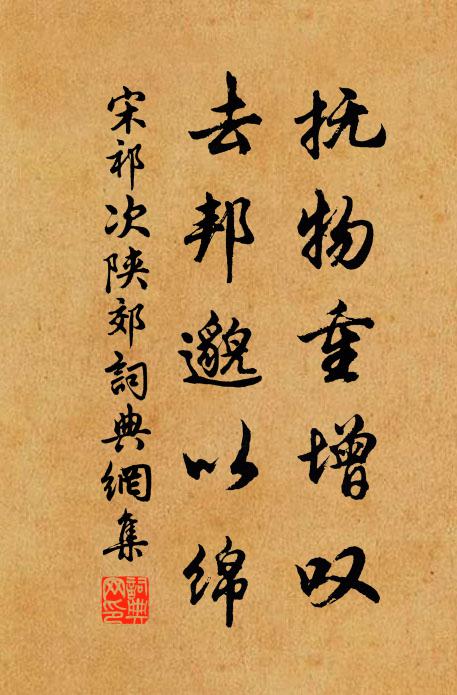 抚物重增叹
去邦邈以绵
宋祁次陕郊詞典網集
詞典网印